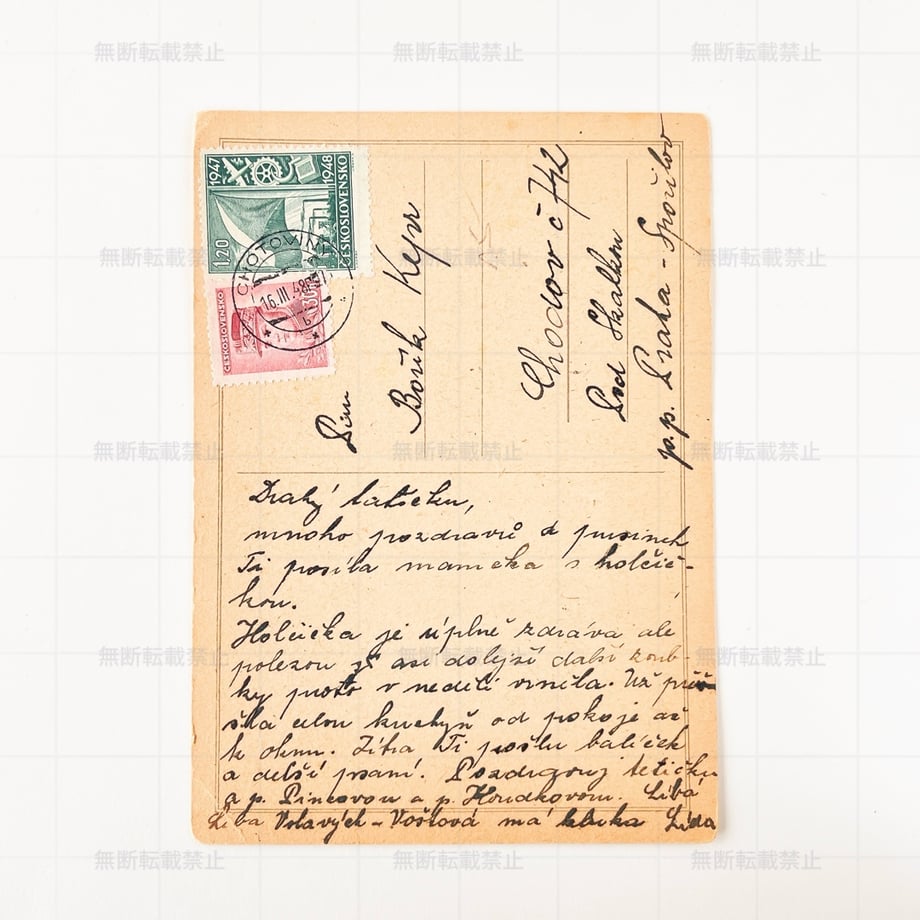 1947
1948
1.20
ČESKOSLOVENSKO
ČESKOSLOVENSKO
CHOTOVINY
16.III.48
Pan
Bořík
Chodov č 742
Pod Skalkou
p.p. Praha - Spořilov
Drahý tatíčku,
mnoho pozdravů a pusinek
Ti posílá mamička s holčič-
kou.
Holčička je úplně zdráva ale
polezou jí asi dolejší další zoub-
ky proto v neděli
šla celou kuchyň od pokoje až
k oknu. Zítra Ti pošlu balíček
a delší psaní. Pozdravuj tetičku
a p. a p. Houdkovou. Líbá
má kluka Lída
無断転載禁止 無断転載禁止 無断転載禁止
無断転載禁止 無断転載禁止 無断転載禁止
無断転載禁止 無断転載禁止 無断転載禁止
無断転載禁止 無断転載禁止 無断転載禁止
無断転載禁止 無断転載禁止 無断転載禁止